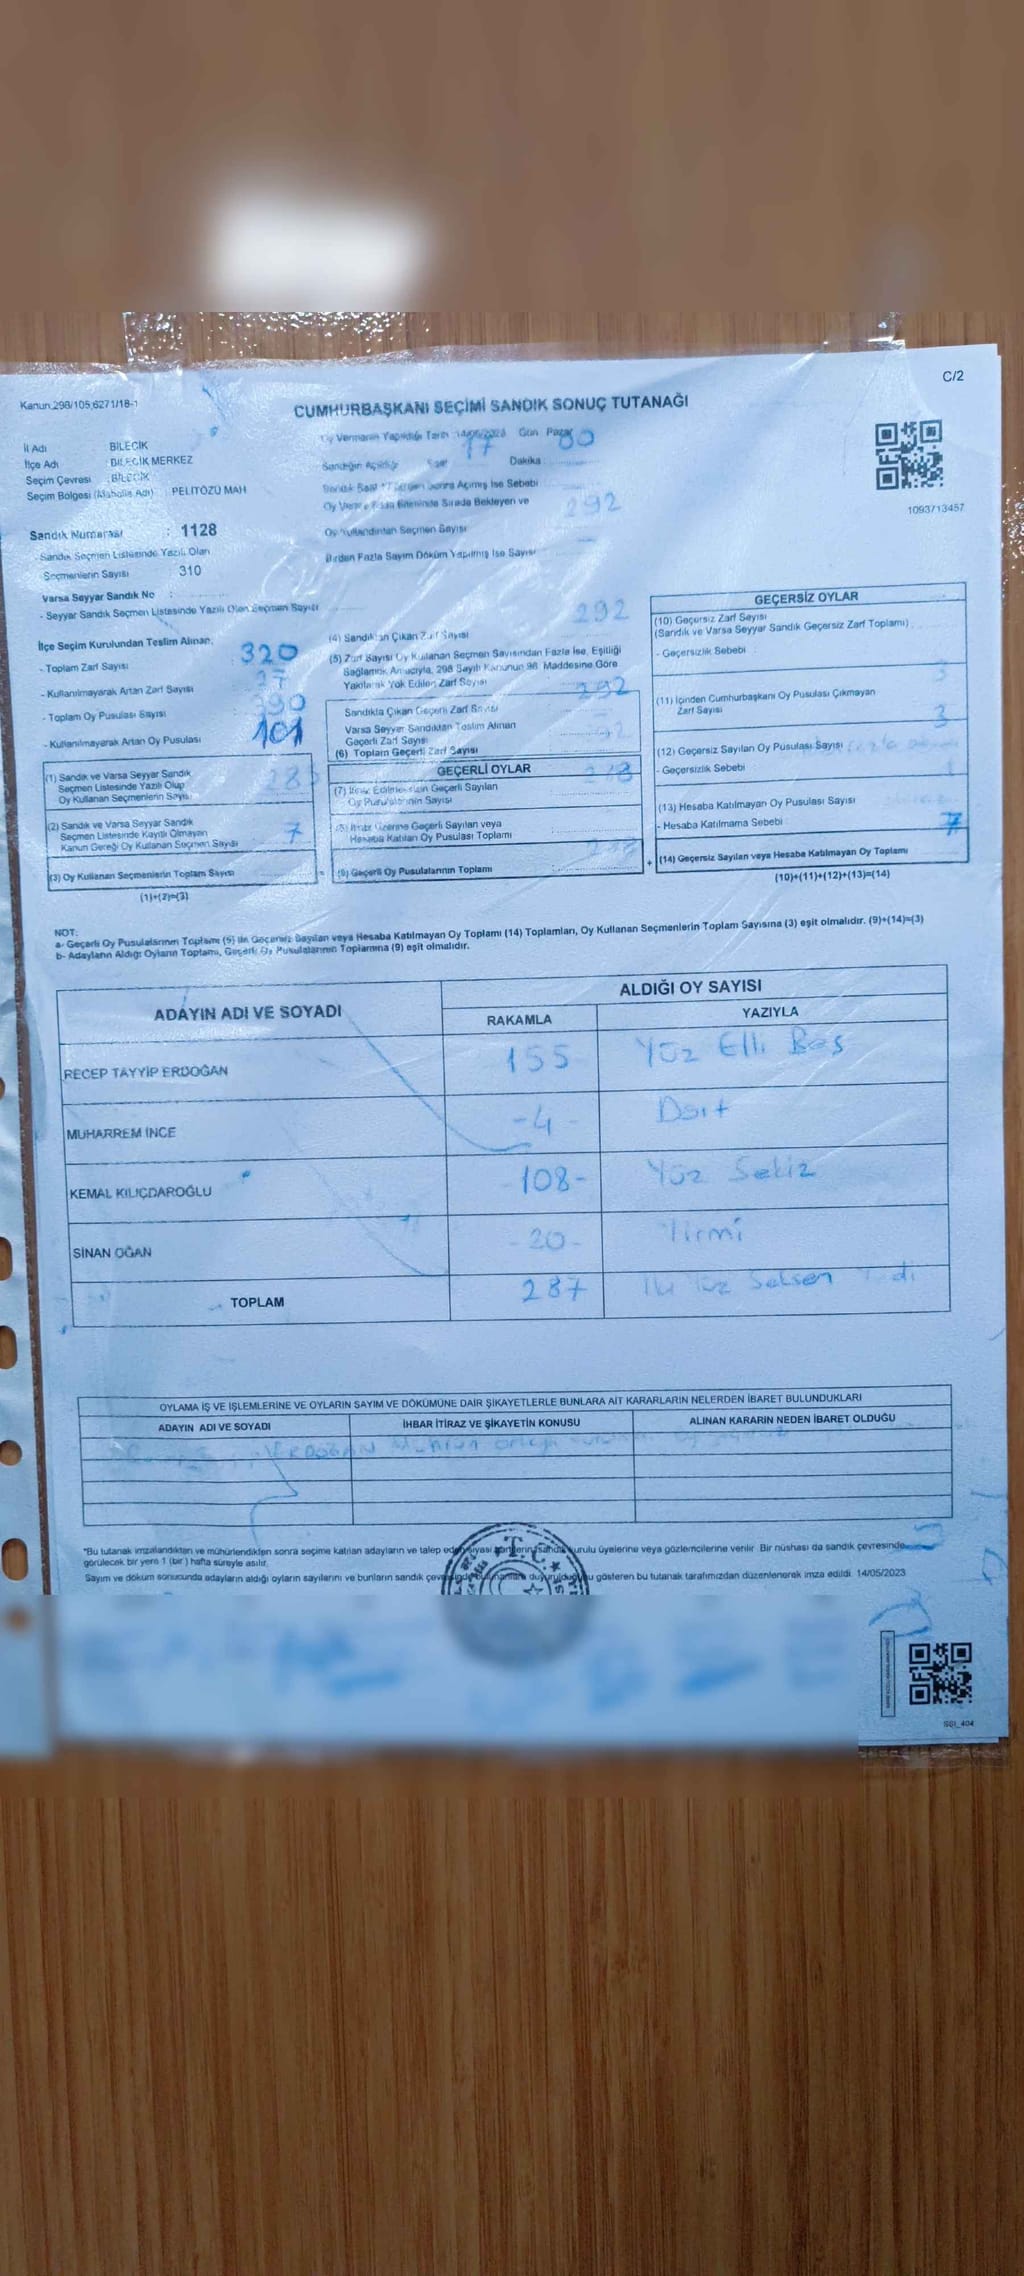 C/2
Kanun 298/105,6271/18-1
CUMHURBAŞKANI SEÇİMİ SANDIK SONUÇ TUTANAĞI
İl Adı BİLECİK
İlçe Adı : BİLECİK MERKEZ
Seçim Çevresi : BİLECİK
Seçim Bölgesi (Mahalle Adı) : PELİTÖZÜ MAH
Sandık Numarası : 1128
- Sandık Seçmen Listesinde Yazılı Olan
Seçmenlerin Sayısı 310
Varsa Seyyar Sandık No :
- Seyyar Sandık Seçmen Listesinde Yazılı Olan Seçmen Sayısı
İlçe Seçim Kurulundan Teslim Alınan;
- Toplam Zarf Sayısı 320
- Kullanılmayarak Artan Zarf Sayısı
- Toplam Oy Pusulası Sayısı
- Kullanılmayarak Artan Oy Pusulası 101
(1) Sandık ve Varsa Seyyar Sandık
Seçmen Listesinde Yazılı Olup
Oy Kullanan Seçmenlerin Sayısı
(2) Sandık ve Varsa Seyyar Sandık
Seçmen Listesinde Kayıtlı Olmayan
Kanun Gereği Oy Kullanan Seçmen Sayısı 7
(3) Oy Kullanan Seçmenlerin Toplam Sayısı
(1)+(2)=(3)
Oy Vermenin Yapıldığı Tarih 14/05/2023 Gün Pazar
Sandığın Açıldığı Saat 17 Dakika 00
Oy Kullandırılan Seçmen Sayısı 292
Birden Fazla Sayım Döküm Yapılmış İse Sayısı
(4) Sandıktan Çıkan Zarf Sayısı 292
(5) Zarf Sayısı Oy Kullanan Seçmen Sayısından Fazla İse, Eşitliği
Sağlamak Amacıyla, 298 Sayılı Kanunun 98. Maddesine Göre
Yakılarak Yok Edilen Zarf Sayısı
Sandıkta Çıkan Geçerli Zarf Sayısı 292
Varsa Seyyar Sandıktan Teslim Alınan
Geçerli Zarf Sayısı
(6) Toplam Geçerli Zarf Sayısı
GEÇERLİ OYLAR
(7) İtiraz Edilmeksizin Geçerli Sayılan
Oy Pusulalarının Sayısı
(8) İtiraz Üzerine Geçerli Sayılan veya
Hesaba Katılan Oy Pusulası Toplamı
(9) Geçerli Oy Pusulalarının Toplamı
1093713457
GEÇERSİZ OYLAR
(10) Geçersiz Zarf Sayısı
(Sandık ve Varsa Seyyar Sandık Geçersiz Zarf Toplamı)
- Geçersizlik Sebebi
(11) İçinden Cumhurbaşkanı Oy Pusulası Çıkmayan
Zarf Sayısı 3
(12) Geçersiz Sayılan Oy Pusulası Sayısı 3
- Geçersizlik Sebebi
(13) Hesaba Katılmayan Oy Pusulası Sayısı
- Hesaba Katılmama Sebebi
(14) Geçersiz Sayılan veya Hesaba Katılmayan Oy Toplamı 7
(10)+(11)+(12)+(13)=(14)
NOT:
a- Geçerli Oy Pusulalarının Toplamı (9) ile Geçersiz Sayılan veya Hesaba Katılmayan Oy Toplamı (14) Toplamları, Oy Kullanan Seçmenlerin Toplam Sayısına (3) eşit olmalıdır. (9)+(14)=(3)
b- Adayların Aldığı Oyların Toplamı, Geçerli Oy Pusulalarının Toplamına (9) eşit olmalıdır.
ADAYIN ADI VE SOYADI ALDIĞI OY SAYISI
RAKAMLA YAZIYLA
RECEP TAYYİP ERDOĞAN 155 Yüz Elli Beş
MUHARREM İNCE -4- Dört
KEMAL KILIÇDAROĞLU -108- Yüz Sekiz
SİNAN OĞAN -20- Yirmi
TOPLAM 287 İki Yüz Seksen Yedi
OYLAMA İŞ VE İŞLEMLERİNE VE OYLARIN SAYIM VE DÖKÜMÜNE DAİR ŞİKAYETLERLE BUNLARA AİT KARARLARIN NELERDEN İBARET BULUNDUKLARI
ADAYIN ADI VE SOYADI İHBAR İTİRAZ VE ŞİKAYETİN KONUSU ALINAN KARARIN NEDEN İBARET OLDUĞU
ERDOĞAN
*Bu tutanak imzalandıktan ve mühürlendikten sonra seçime katılan adayların ve talep eden siyasi partilerin sandık kurulu üyelerine veya gözlemcilerine verilir. Bir nüshası da sandık çevresinde
görülecek bir yere 1 (bir) hafta süreyle asılır.
Sayım ve döküm sonucunda adayların aldığı oyların sayılarını ve bunların sandık gösteren bu tutanak tarafımızdan düzenlenerek imza edildi. 14/05/2023
T.C.
SSI_404